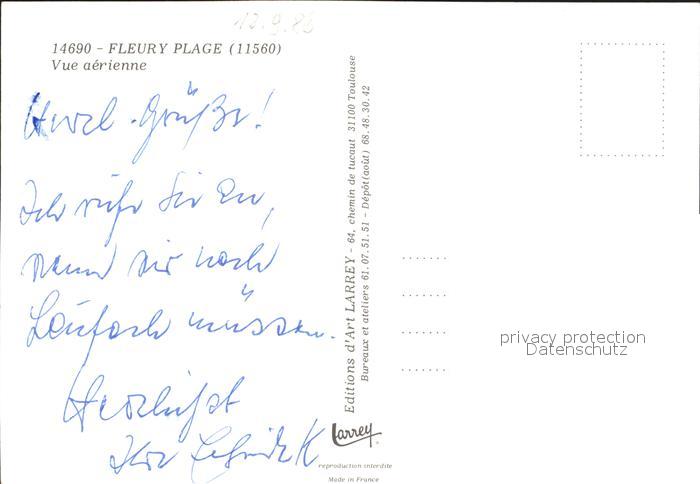 12.9.86
14690 - FLEURY PLAGE (11560)
Vue aérienne
Herzl. Grüße!
Ich rufe Sie an,
wenn wir nach
müssen.
Herzlichst
Ihr
Editions d'Art LARREY - 64, chemin de tucaut 31100 Toulouse
Bureaux et ateliers 61.07.51.51 - Dépôt(août) 68.48.30.42
privacy protection
Datenschutz
Larrey
reproduction interdite
Made in France